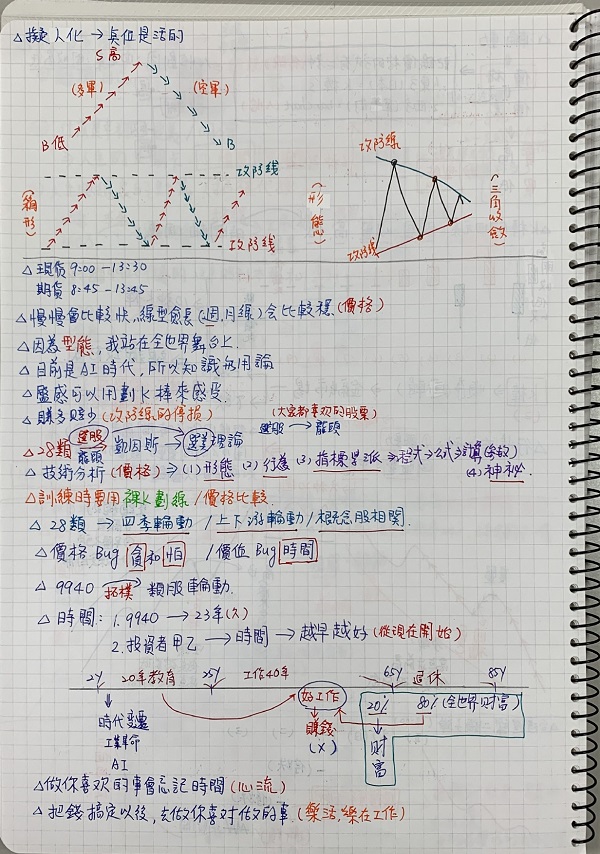 △擬人化 → 真位是活的
S高
(多軍) (空軍)
B低 B
攻防线
(箱形)
攻防线
(形態)
攻防線
攻防线
(三角收斂)
△現貨 9:00 - 13:30
期貨 8:45 - 13:45
△慢慢會比較快,線型愈長(週.月線)會比較穩(價格)
△因為型態,我站在全世界舞台上.
△目前是AI時代,所以知識無用論
△靈感可以用劃K棒來感受.
△賺多賠少(攻防線的停損) (大家都喜欢的股票)
選股 選股 → 龍頭
△28類 凱因斯 → 選美理論
龍頭
△技術分析(價格) → (1)形態 (2)行為 (3)指標學派→程式→公式→計算(參數)
(4)神祕
△訓練時要用裸K劃線/價格比較
△28類 → 四季輪動/上下游輪動/概念股相關.
△價格Bug 貪和怕 /價位Bug 時間
△9940 → 類股輪動.
拓樸
△時間: 1.9940 → 23年(久)
2.投資者甲乙 → 時間 → 越早越好(從現在開始)
2Y 20年教育 25Y 工作40年 65Y 退休 85Y
時代变遷 好工作 20% 80%(全世界财富)
工業革命 賺錢 财富
AI (X)
△做你喜欢的事會忘記時間(心流)
△把錢搞定以後,去做你喜对做的事(樂活,樂在工作)